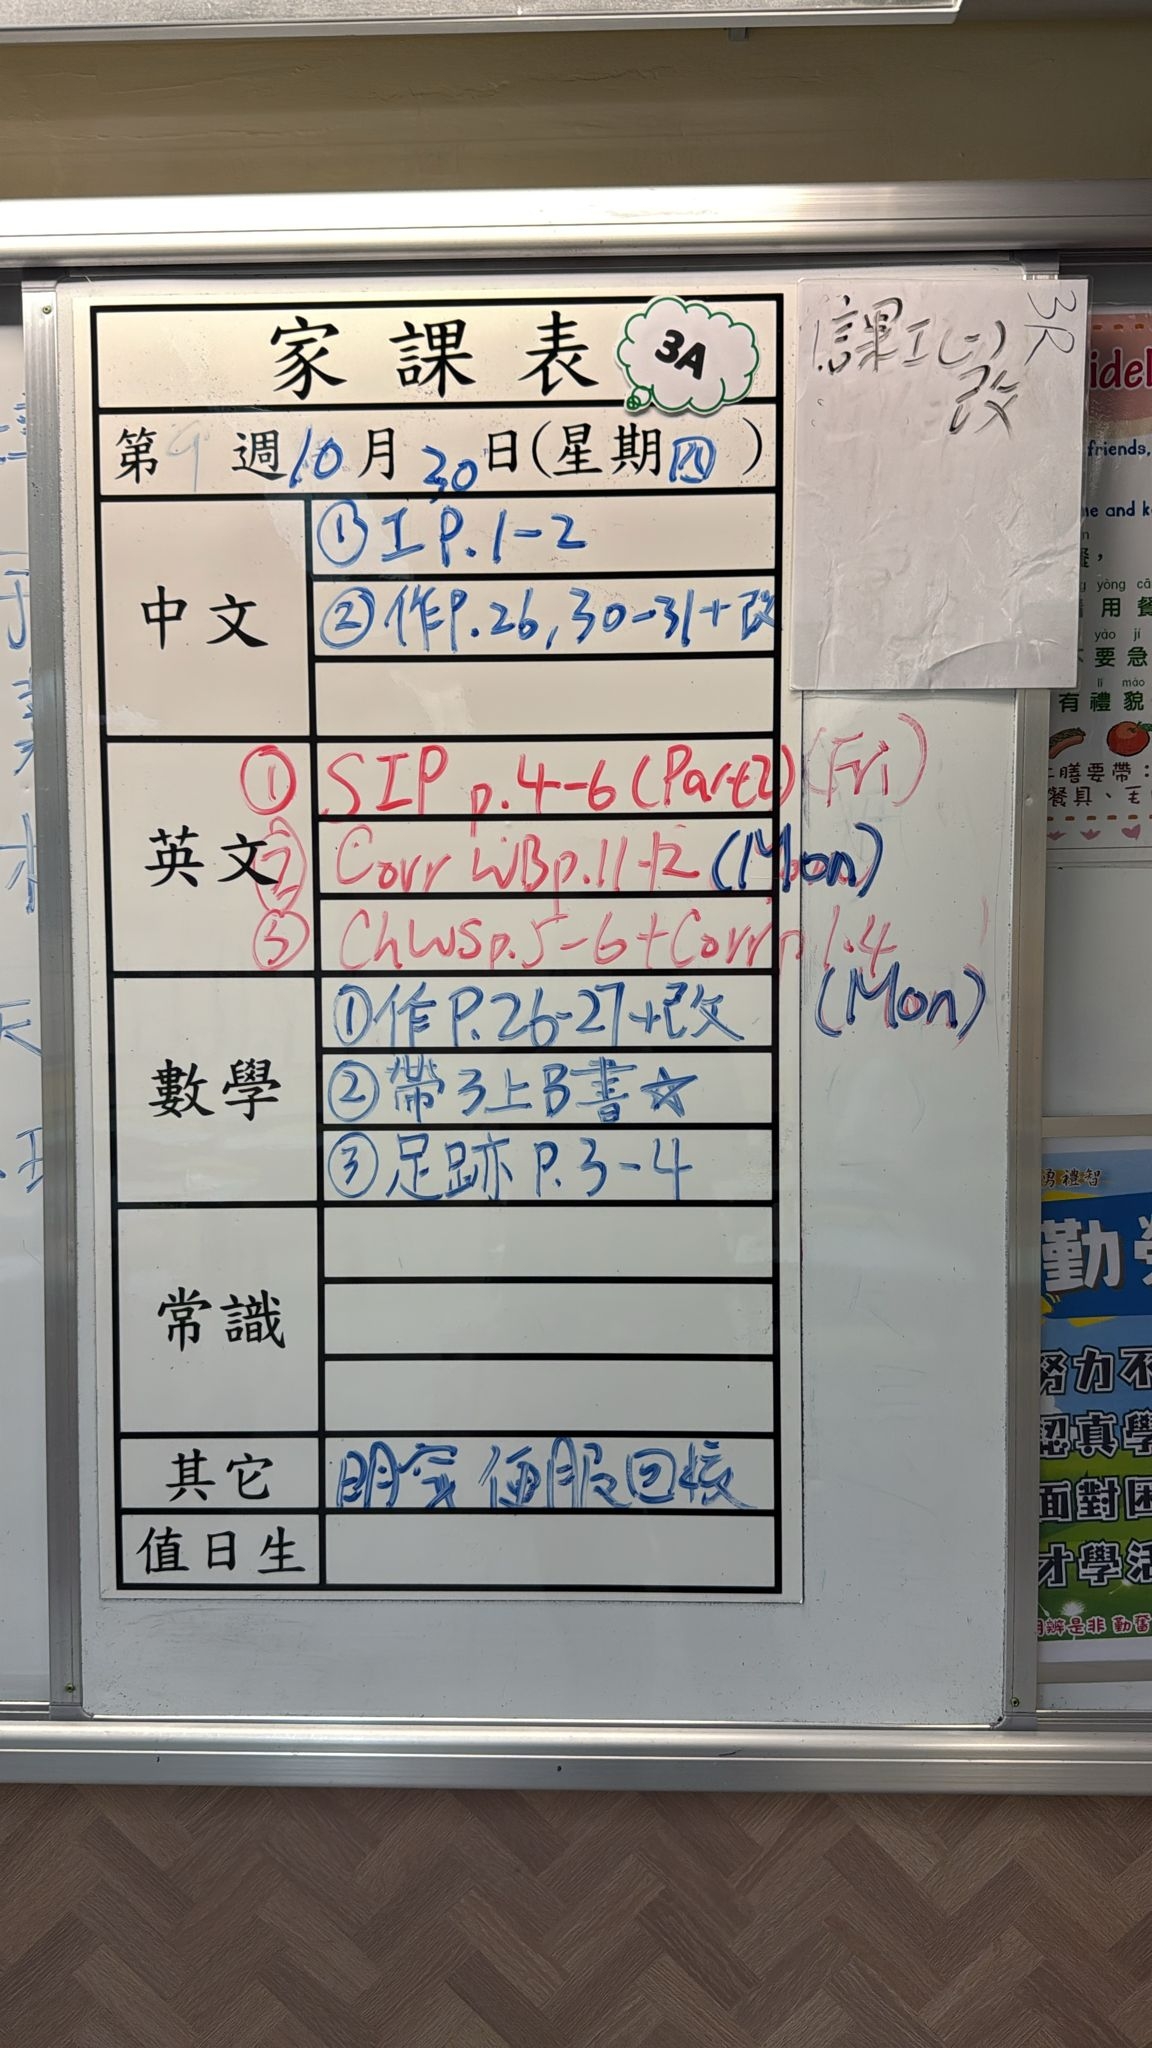 家課表
3A
第9週10月30日(星期四)
中文
①工P.1-2
②作P.26,30-31+改
英文
① SIP p.4-6 (Part2) (Fri)
② Corr WBp.11-12 (Mon)
③ Ch WS p.5-6 + Corr p1.4
(Mon)
數學
①作P.26-27+改
②帶3上B書☆
③足跡 P.3-4
常識
其它
明天便服回校
值日生
3R
課工(一)
改
idel
friends,
me and k
用餐
yòng cā
yào jí
要急
lǐ mào
有禮貌
膳要帶：
餐具、毛
勇禮智
勤勞
努力不
認真學
面對困
才學活
明辨是非 勤奮